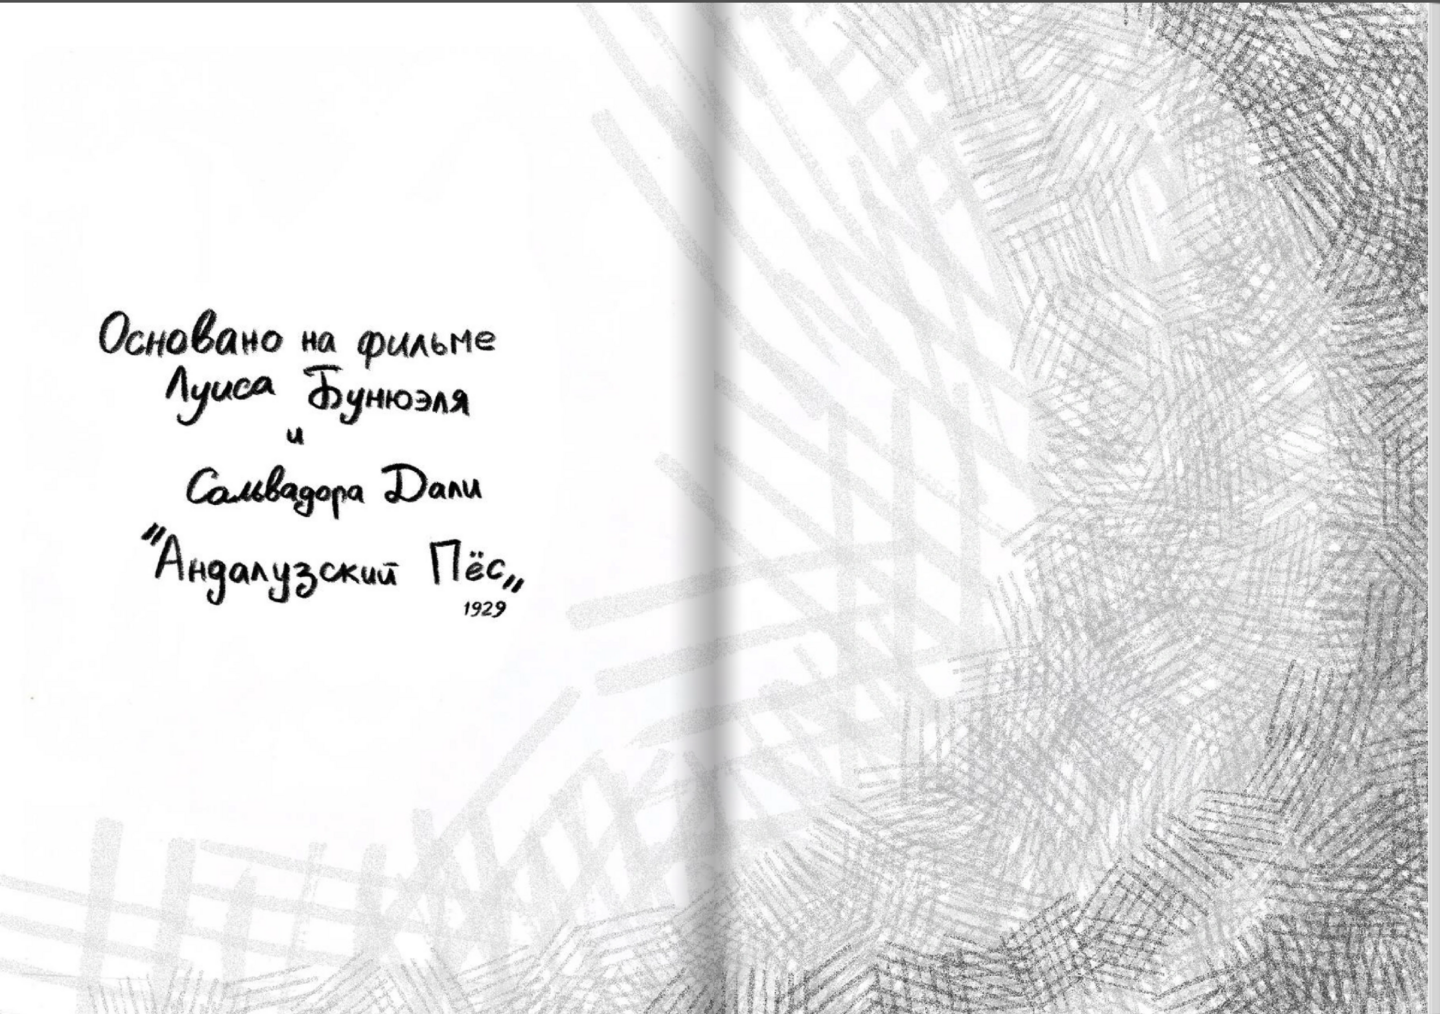 Основано на фильме
Луиса Бунюэля
и
Сальвадора Дали
"Андалузский Пёс"
1929